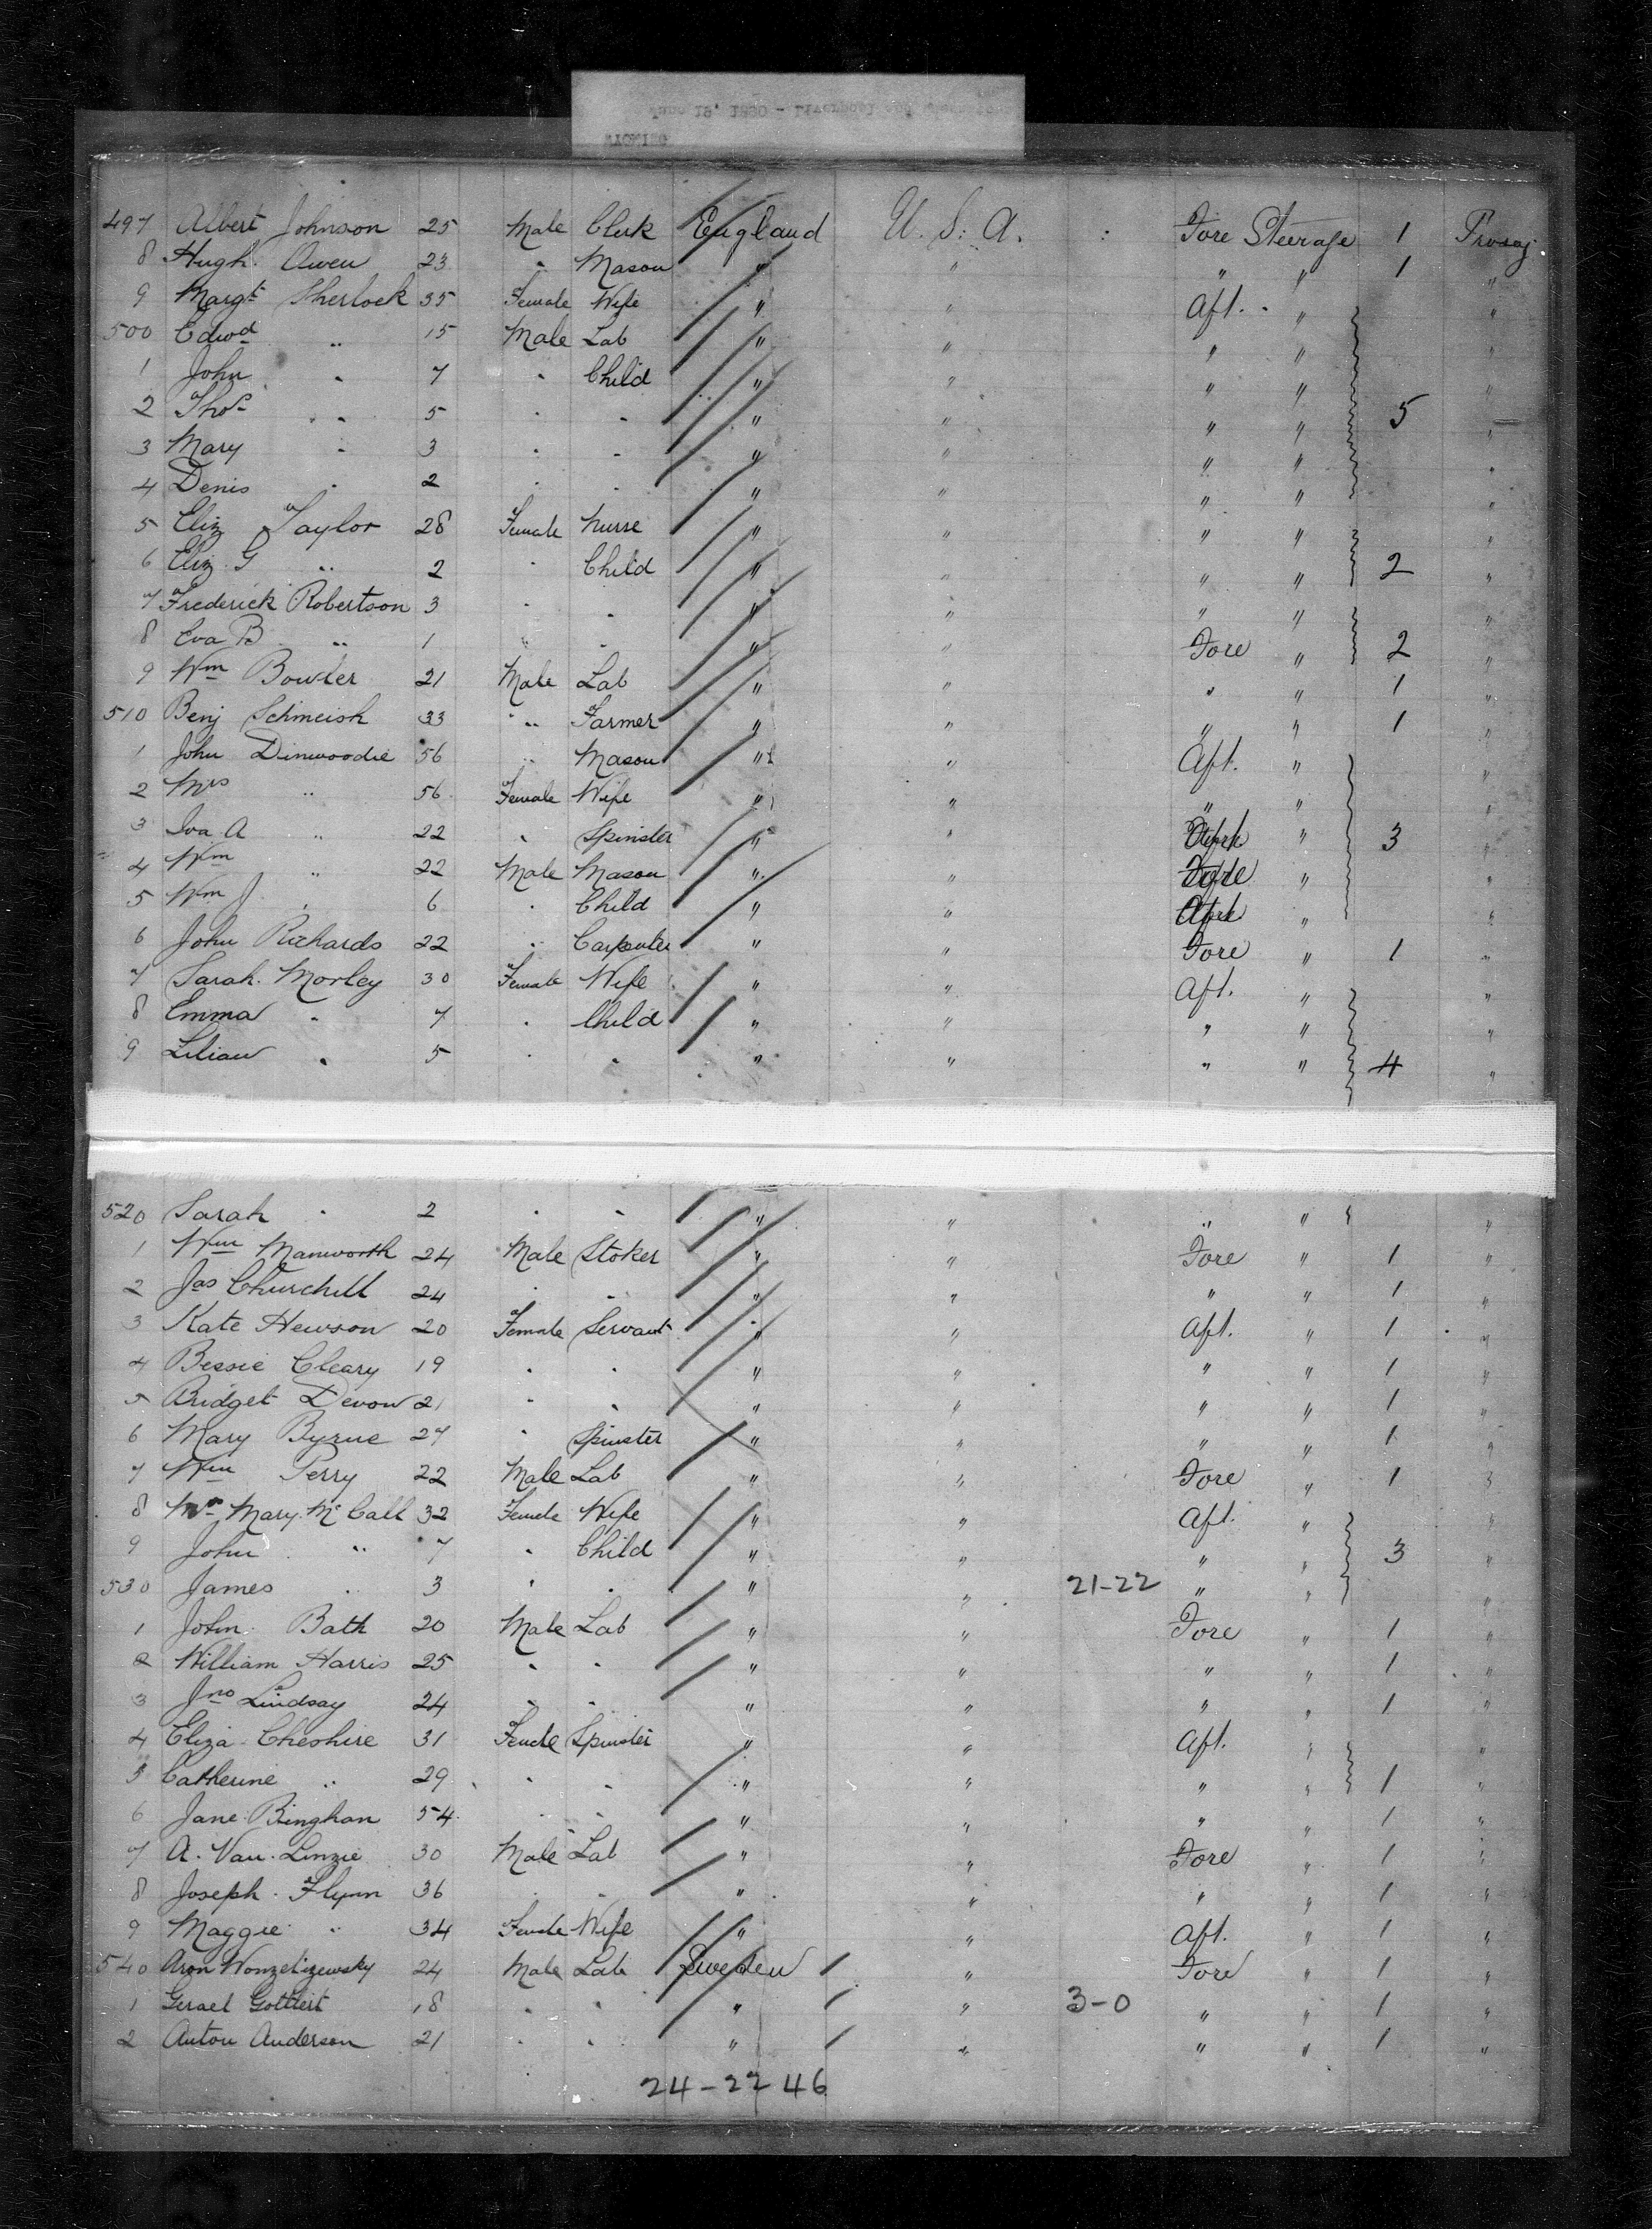 497 Albert Johnson 25 Male Clerk England U. S. A. Fore Steerage 1
8 Hugh Owen 23 " Mason " " " " 1 "
9 Margt Sherlock 35 Female Wife " " Aft. " "
500 Edwd " 15 Male Lab " " " " "
1 John " 7 " Child " " " " "
2 Thos " 5 " " " " " " 5 "
3 Mary " 3 " " " " " " "
4 Denis " 2 " " " " " " "
5 Eliz Taylor 28 Female Nurse " " " " "
6 Eliz G " 2 " Child " " " " 2 "
7 Frederick Robertson 3 " " " " " " "
8 Eva B " 1 " " " " Fore " 2 "
9 Wm Bowler 21 Male Lab " " " " 1 "
510 Benj Schmeish 33 " Farmer " " " " 1 "
1 John Dinwoodie 56 " Mason " " Aft. " "
2 Mrs " 56 Female Wife " " " " "
3 Iva A " 22 " Spinster " " " 3 "
4 Wm " 22 Male Mason " " " "
5 Wm J " 6 " Child " " " "
6 John Richards 22 " Carpenter " " Fore " 1 "
7 Sarah Morley 30 Female Wife " " Aft. " "
8 Emma " 7 " Child " " " " "
9 Lilian " 5 " " " " " " 4 "
520 Sarah " 2 " " " " " " "
1 Wm Manworth 24 Male Stoker " " Fore " 1 "
2 Jas Churchill 24 " " " " " " 1 "
3 Kate Hewson 20 Female Servant " " Aft. " 1 "
4 Bessie Cleary 19 " " " " " " 1 "
5 Bridget Devon 21 " " " " " " 1 "
6 Mary Byrne 27 " Spinster " " " " 1 "
7 Wm Perry 22 Male Lab " " Fore " 1 "
8 Mrs Mary McCall 32 Female Wife " " Aft. " "
9 John " 7 " Child " " " " 3 "
530 James " 3 " " " " 21-22 " " "
1 John Bath 20 Male Lab " " Fore " 1 "
2 William Harris 25 " " " " " " 1 "
3 Jno Lindsay 24 " " " " " " 1 "
4 Eliza Cheshire 31 Female Spinster " " Aft. " "
5 Catherine " 29 " " " " " " 1 "
6 Jane Binghan 54 " " " " " " 1 "
7 A. Van Linzie 30 Male Lab " " Fore " 1 "
8 Joseph Flynn 36 " " " " " " 1 "
9 Maggie " 34 Female Wife " " Aft. " 1 "
540 Aron 24 Male Lab Sweden " Fore " 1 "
1 Gottlert 18 " " " " 3-0 " " 1 "
2 Anton Anderson 21 " " " " " " 1 "
24-22 46